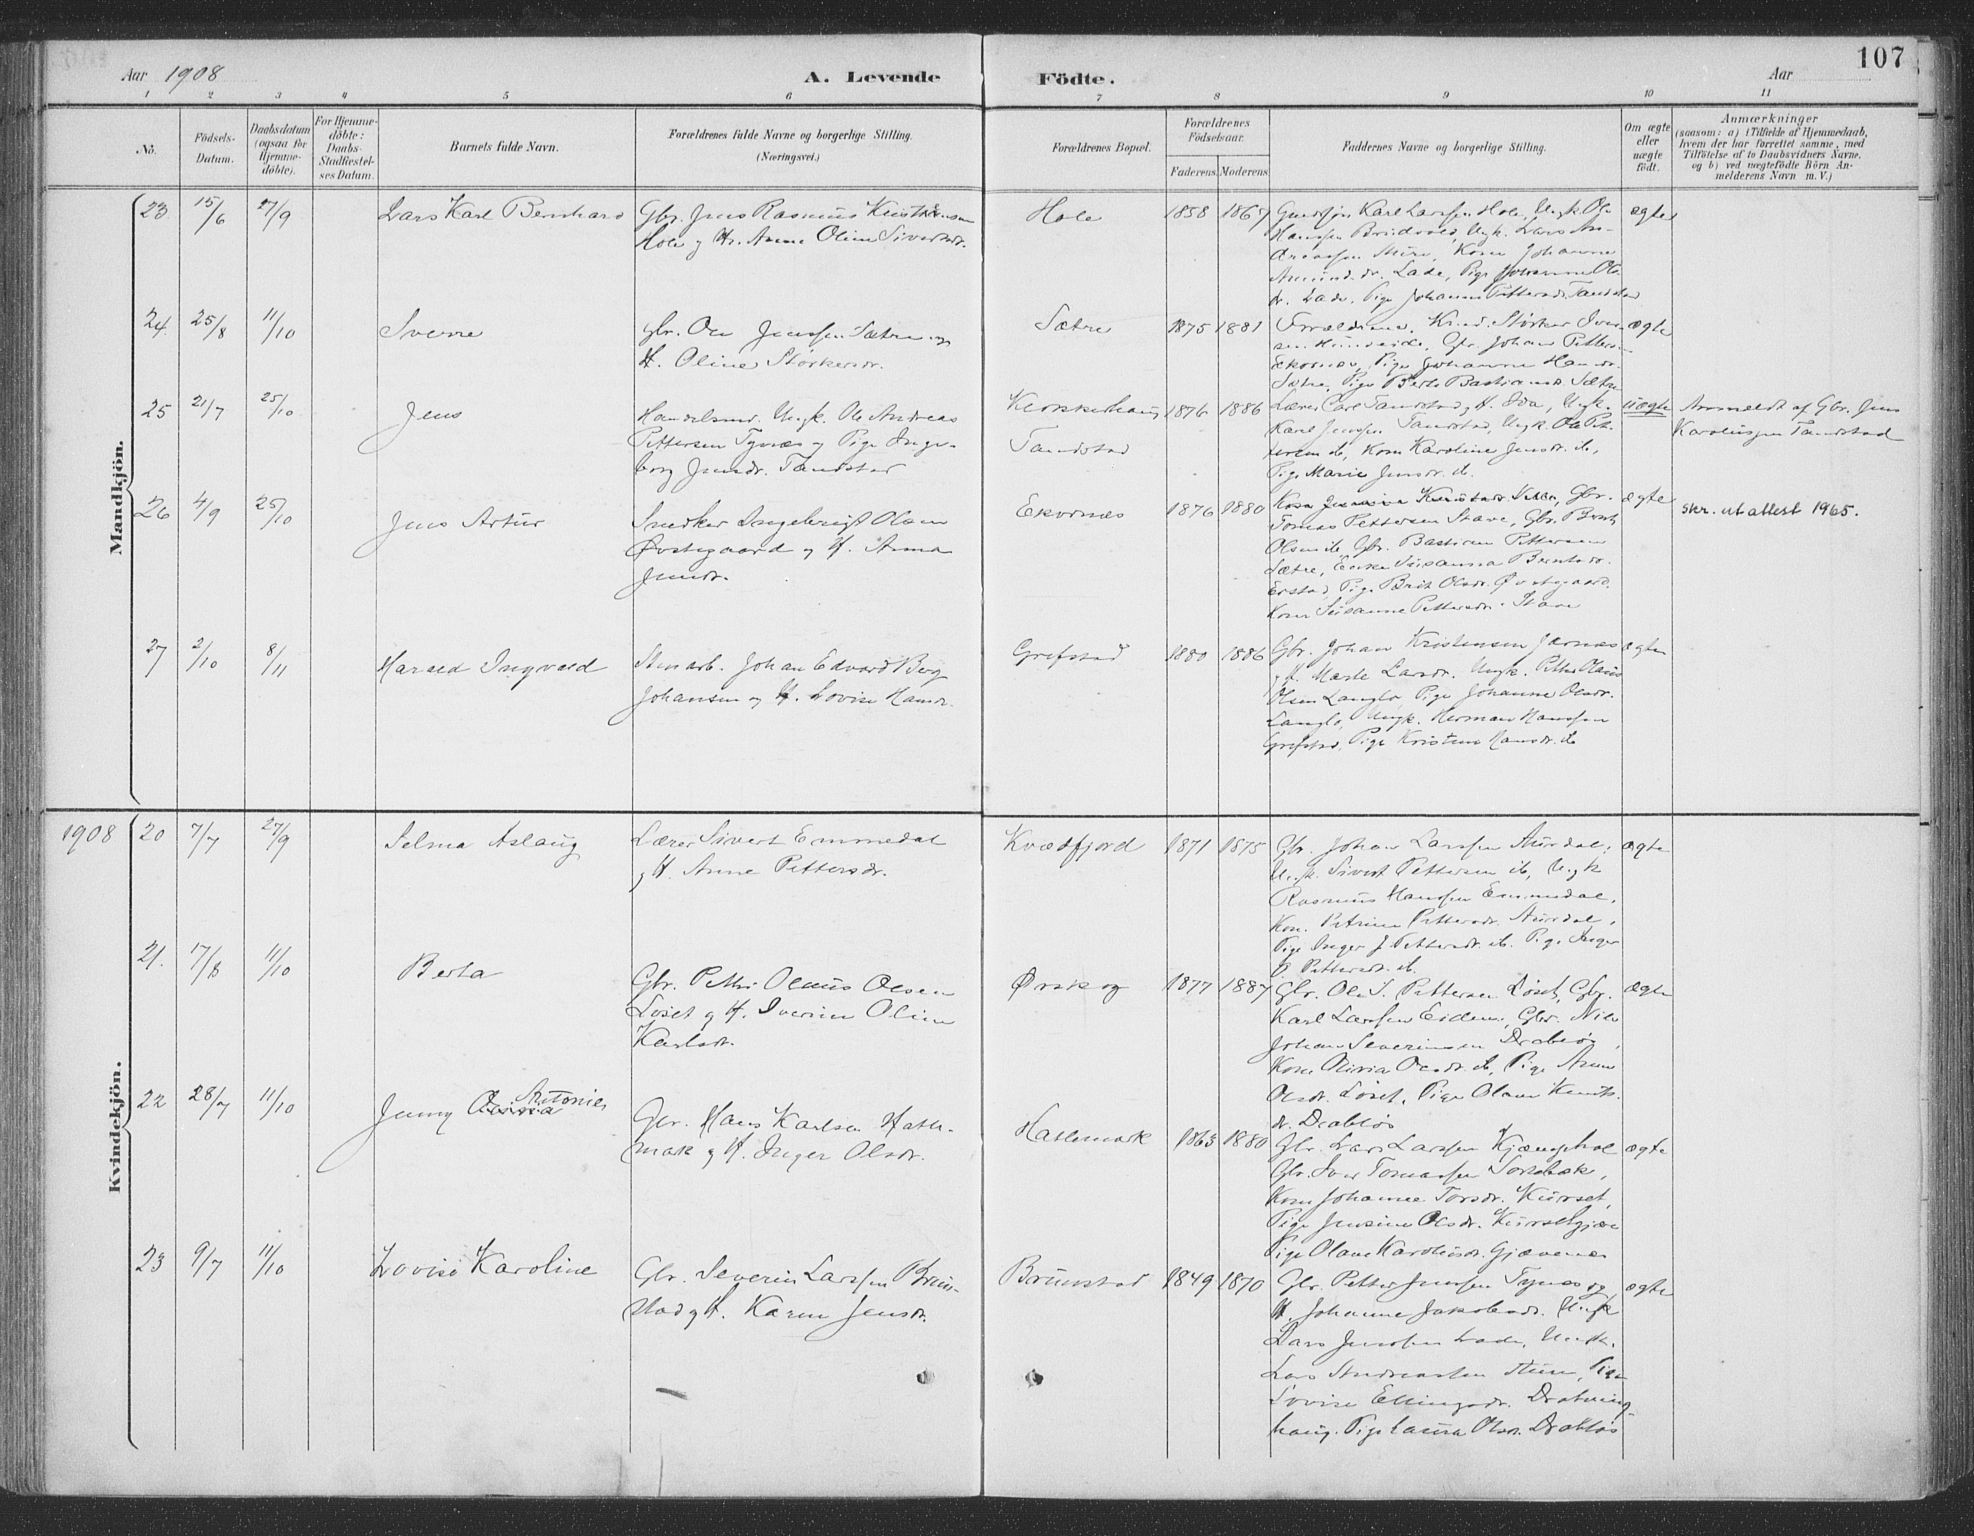 107
Aar 1908
A. Levende
Födte.
Aar
1 2 3 4 5 6 7 8 9 10 11
No.
Födsels-
Datum.
Daabsdatum
(ogsaa for
Hjemme-
döbte).
For Hjemme-
döbte:
Daabs-
Stadfæstel-
ses Datum.
Barnets fulde Navn.
Forældrenes fulde Navne og borgerlige Stilling.
(Næringsvei.)
Forældrenes Bopæl.
Forældrenes
Födselsaar.
Faderens. Moderens.
Faddernes Navne og borgerlige Stilling.
Om ægte
eller
uægte
födt.
Anmærkninger
(saasom: a) i Tilfælde af Hjemmedaab,
hvem der har forrettet samme, med
Tilföielse af to Daabsvidners Navne,
og b) ved uægtefödte Börn An-
melderens Navn m. V.)
Mandkjön.
23. 15/6 27/9 Lars Karl Bernhard
Gbr. Jens Rasmus Kristiansen
Hole og H. Anne Oline Sivertsdr.
Hole 1858 1867
Gundsjon Karl Larssen Hole, Ungk. Ole
Hanssen Brudvold, Ungk. Lars An-
dreassen Stüre, Kone Johanne
Amundsdr. Lade, Pige Johanne Ols-
dr. Lade, Pige Johanne Pettersdr. Tandstad
ægte
24. 25/8 11/10 Sverre
Gbr. Ole Jenssen Sætre og
H. Oline Störkersdr.
Sætre 1875 1881
Forældrene, Störker Iver-
sen Hundeide, Gbr. Johan Petters
Ekornæs, Pige Johanne Hansdr.
Sætre, Pige Berte Bastiansdr. Sætre
ægte
25 21/7 25/10 Jens
Handelsmd. Ungk. Ole Andreas
Pettersen Tynæs og Pige Inge-
borg Jensdr. Tandstad
Tandstad 1876 1886
Lærer Carl Tandstad og H. Ida, Ungk.
Karl Jenssen Tandstad, Ungk. Ole Pet-
tersen ib, Kone Karoline Jensdr. ib,
Pige Marie Jensdr. ib.
uægte
Anmeldt af Gbr. Jens
Karolussen Tandstad
26 4/9 25/10 Jens Artur
Snedker Ingebrigt Olsen
Øvstegaard og H. Anna
Jensdr.
Ekornæs 1876 1880
Kone Jensine Knudsdr. Gbr.
Tomas Pettersen Stave, Gbr. Bernt
Olsen ib, Gbr. Bastian Pettersen
Sætre, Enke Susanna Berntsdr.
Erstad, Pige Berit Olsdr. Øvstegaard,
Kone Susanne Pettersdr. Stave
ægte
skr. ut attest 1965.
27 2/10 8/11 Harald Ingvald
Stenarb. Johan Edvard Berg
Johansen og H. Lovise Hansdr.
Grefstad 1880 1886
Gbr. Johan Kristensen Jarnæs
og H. Marte Larsdr. Ungk. Petter Olaus
Olsen Langlo, Pige Johanne Olsdr.
Langlo, Ungk. Herman Hanssen
Grefstad, Pige Kristine Hansdr. ib
ægte
1908
Kvindekjön.
20 7/7 27/9 Selma Aslaug
Lærer Sivert Emmedal
og H. Anne Pettersdr.
Kvædfjord 1871 1875
Gbr. Johan Larssen Aurdal,
Ungk. Sivert Pettersen ib, Ungk
Rasmus Hanssen Emmedal,
Kone Petrine Pettersdr. Aurdal,
Pige Inger J. Pettersdr. ib. Pige Inger
P. Pettersdr. ib.
ægte
21. 17/8 11/10 Berta
Gbr. Petter Olaus Olsen
Löset og H. Iverine Oline
Karlsdr.
Ørskog 1877 1887
Gbr. Ole S. Pettersen Löset, Gbr.
Karl Larssen Eidem, Gbr. Nils
Johan Severinsen Drabløs,
Kone Olivia Olsdr. ib, Pige Anne
Olsdr. Löset, Pige Olave Knuts-
dr. Drabløs
ægte
22 28/7 11/10 Jenny Antonie
Gbr. Hans Karlsen Hatle-
mark og H. Inger Olsdr.
Hatlemark 1863 1880
Gbr. Lars Larssen Kjængshol
Gbr. Iver Tomassen Sortebæk,
Kone Johanne Torsdr. Kurset,
Pige Jensine Olsdr. Kursetgjære
Pige Olave Karolusdr. Gjævenes
ægte
23 9/7 11/10 Lovise Karoline
Gbr. Severin Larssen Brun-
stad og H. Karen Jensdr.
Brunstad 1849 1870
Gbr. Petter Jenssen Tynes og
H. Johanne Jakobsdr. Ungk
Lars Jenssen Lade, Ungk.
Lars Andreassen Stüre, Pige
Lovise Ellingsdr. Drotning-
haug. Pige Laura Olsdr. Drabløs
ægte